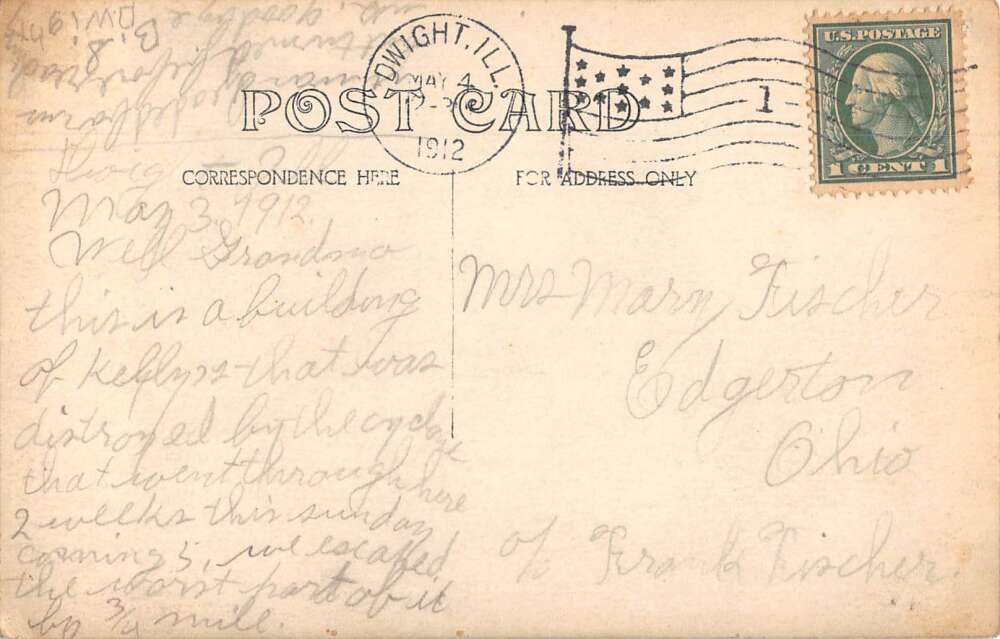 DWIGHT, ILL.
MAY 4
1912
1
U.S. POSTAGE
1 CENT 1
POST CARD
CORRESPONDENCE HERE
FOR ADDRESS ONLY
May 3, 1912.
Well Grandma
this is a building
of that was
distroyed by the cyclone
that went through here
2 weeks this sunday
coming 5, we escaped
the worst part ob it
by 3/4 mile.
Mrs Mary Fischer
Edgerton
Ohio
c/o Frank Fischer.